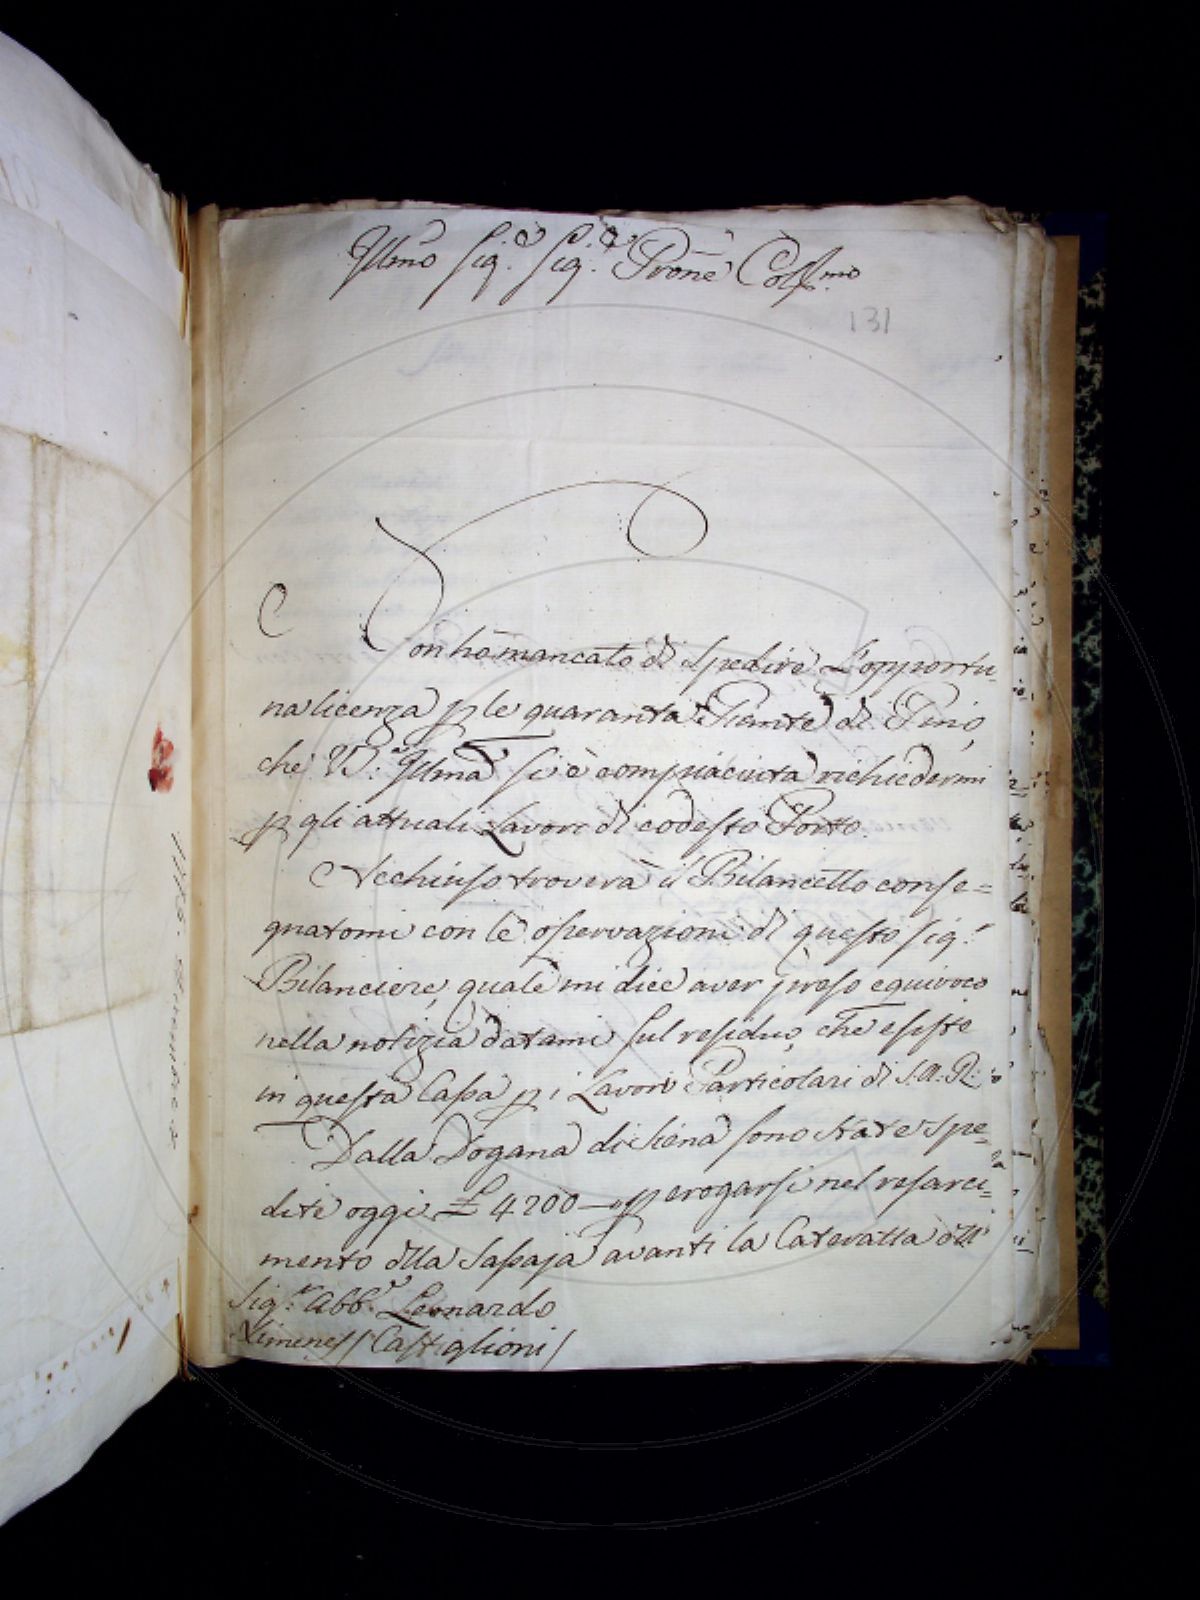 Illmo Sig.e Sig.e Prone Colmo
131
Non hò mancato di spedire L'opportu-
na licenza p le quaranta Piante di Pino,
che V.S. Illma si è compiaciuta richiedermi
p gli attuali Lavori di codesto Porto.
Acchiuso troverà il Bilancetto conse=
gnatomi con le osservazioni di questo Sig.r
Bilanciere, quale mi dice aver preso equivoco
nella notizia datami sul residuo, che esiste
in questa Cassa p i Lavori Particolari di S.A.R.
Dalla Dogana di Siena sono state spe=
dite oggi £ 4200 — p erogarsi nel resarci=
mento dlla Sassaja avanti la Cateratta dll
Sig.r Abb.e Leonardo
Ximenes / Castiglioni /